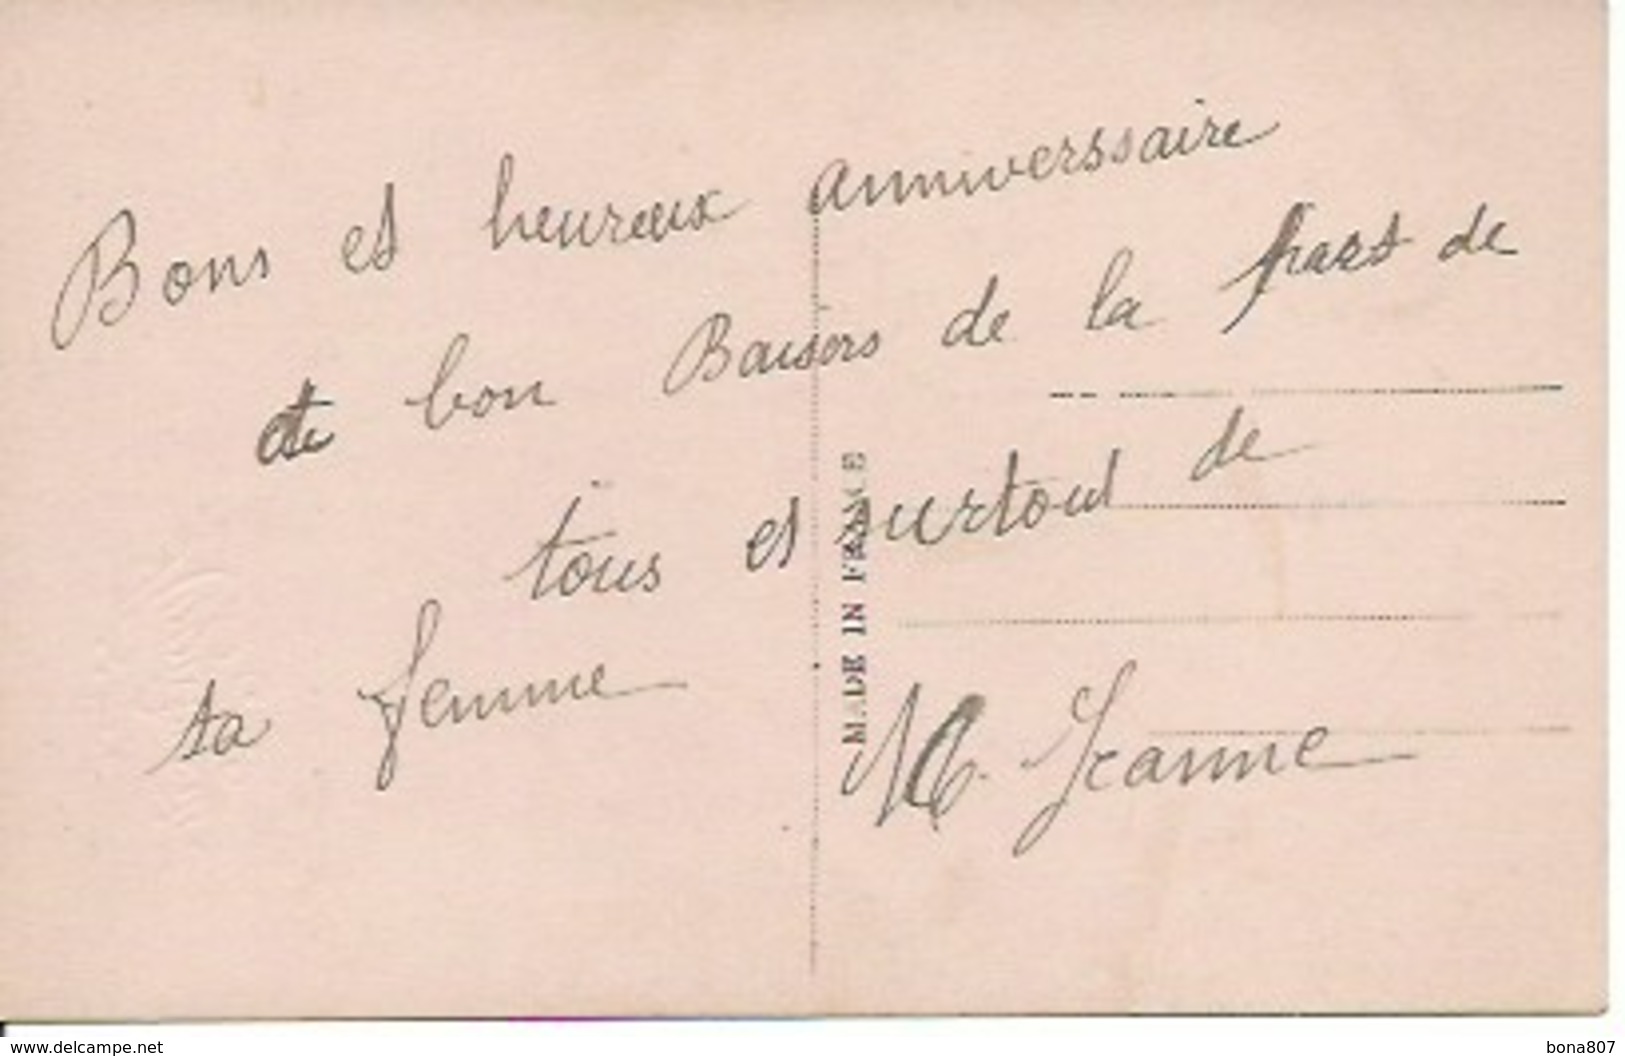 Bons et heureux anniverssaire
et bon Baisers de la part de
tous et surtout de
ta femme
M. Jeanne
MADE IN FRANCE
www.delcampe.net
bona807